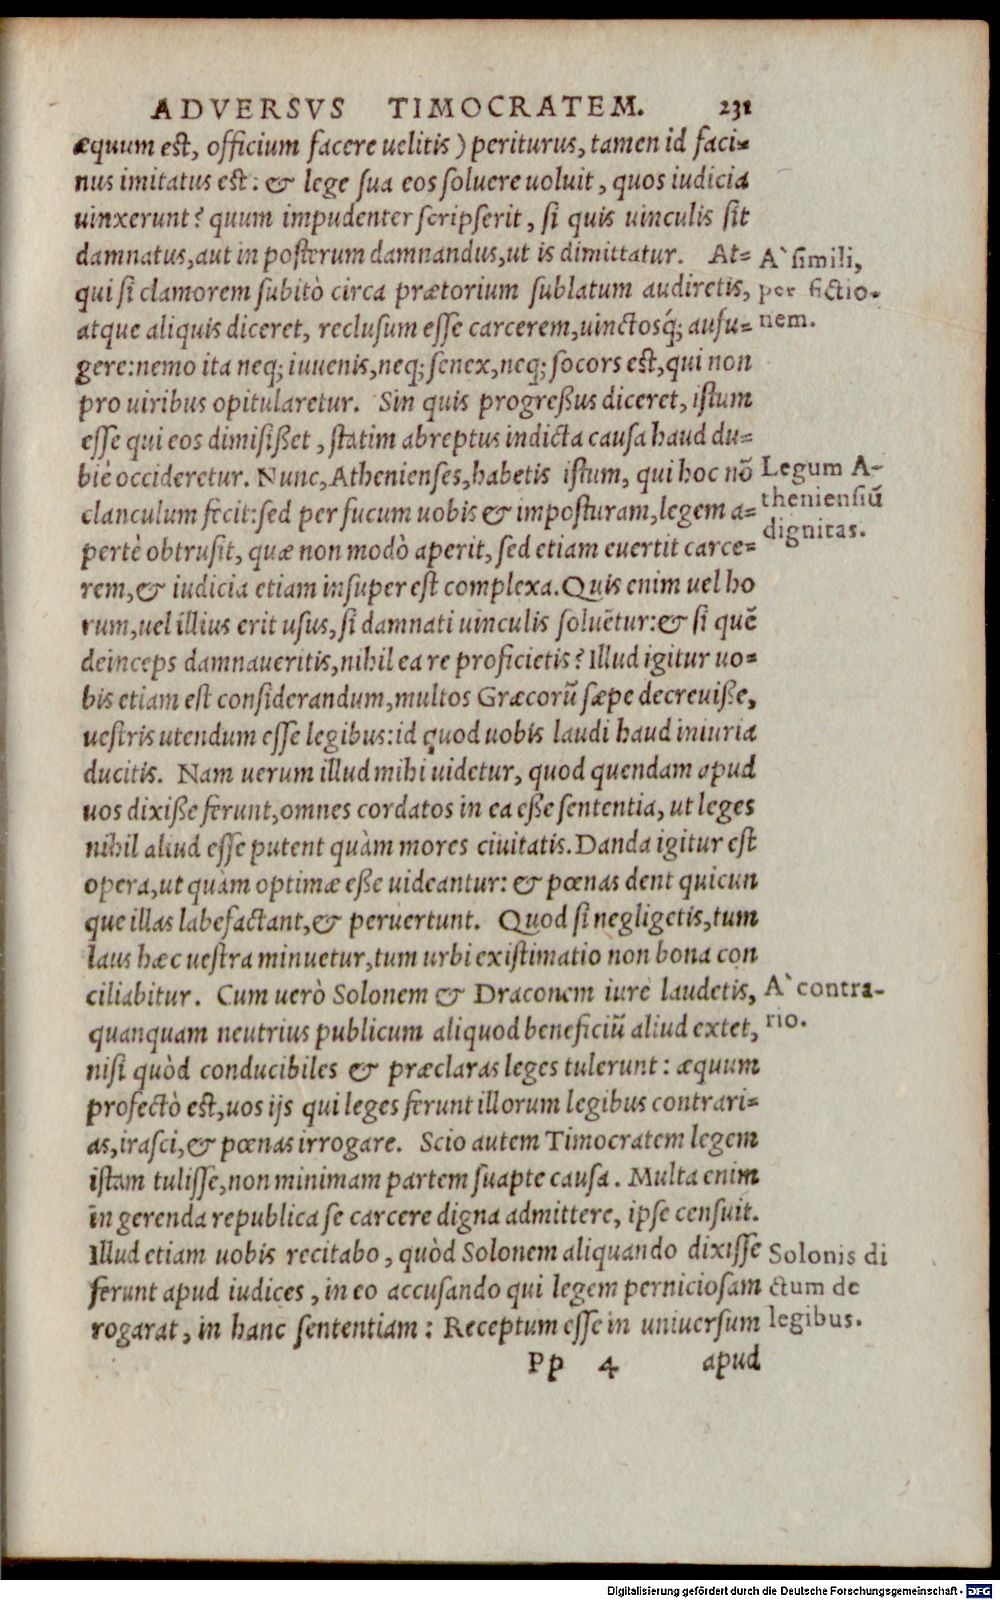 ADVERSVS TIMOCRATEM. 231
æquum est, officium facere uelitis) periturus, tamen id faci=
nus imitatus est: & lege sua eos soluere uoluit, quos iudicia
uinxerunt? quum impudenter scripserit, si quis uinculis sit
damnatus, aut in posterum damnandus, ut is dimittatur. At=
qui si clamorem subitò circa prætorium sublatum audiretis,
atque aliquis diceret, reclusum esse carcerem, uinctosq́; aufu=
gere: nemo ita neq; iuuenis, neq; senex, neq; socors est, qui non
pro uiribus opitularetur. Sin quis progreßus diceret, istum
esse qui eos dimisißet, statim abreptus indicta causa haud du=
bie occideretur. Nunc, Athenienses, habetis istum, qui hoc nō
clanculum fecit: sed per fucum uobis & imposturam, legem a=
pertè obtrusit, quæ non modò aperit, sed etiam euertit carce=
rem, & iudicia etiam insuper est complexa. Quis enim uel ho
rum, uel illius erit usus, si damnati uinculis soluētur: & si quē
deinceps damnaueritis, nihil ea re proficietis? Illud igitur uo=
bis etiam est considerandum, multos Græcorū sæpe decreuiße,
uestris utendum esse legibus: id quod uobis laudi haud iniuria
ducitis. Nam uerum illud mihi uidetur, quod quendam apud
uos dixiße ferunt, omnes cordatos in ea eße sententia, ut leges
nihil aliud esse putent quàm mores ciuitatis. Danda igitur est
opera, ut quàm optimæ eße uideantur: & pœnas dent quicun
que illas labefactant, & peruertunt. Quod si negligetis, tum
laus hæc uestra minuetur, tum urbi existimatio non bona con
ciliabitur. Cum uerò Solonem & Draconem iure laudetis,
quanquam neutrius publicum aliquod beneficiū aliud extet,
nisi quòd conducibiles & præclaras leges tulerunt: æquum
profectò est, uos ijs qui leges ferunt illorum legibus contrari=
as, irasci, & pœnas irrogare. Scio autem Timocratem legem
istam tulisse, non minimam partem suapte causa. Multa enim
in gerenda republica se carcere digna admittere, ipse censuit.
Illud etiam uobis recitabo, quòd Solonem aliquando dixisse
ferunt apud iudices, in eo accusando qui legem perniciosam
rogarat, in hanc sententiam: Receptum esse in uniuersum
Pp 4 apud
A` simili,
per fictio-
nem.
Legum A-
theniensiū
dignitas.
A` contra-
rio.
Solonis di
ctum de
legibus.
Digitalisierung gefördert durch die Deutsche Forschungsgemeinschaft - DFG